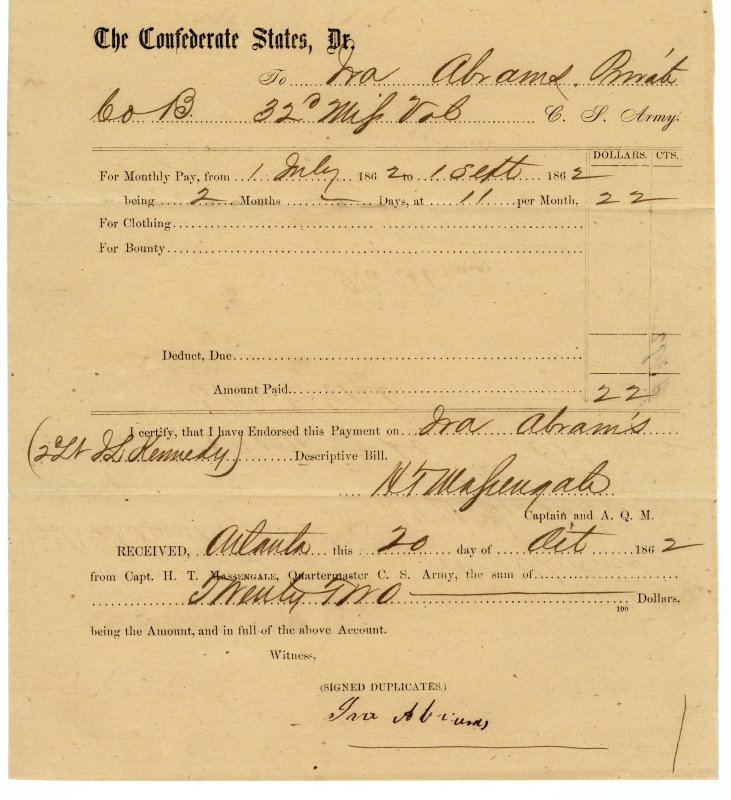 The Confederate States, Dr.
To Ira Abrams, Private
Co B. 32d Miss Vol C. S. Army.
DOLLARS. CTS.
For Monthly Pay, from 1 July 1862 to 1 Sept 1862
being 2 Months — Days, at 11 per Month, 22
For Clothing
For Bounty
Deduct, Due
Amount Paid. 22
I certify, that I have Endorsed this Payment on Ira Abram's
(2d Lt J L Kennedy) Descriptive Bill.
H T Massengale
Captain and A. Q. M.
RECEIVED, Atlanta this 20 day of Oct 1862
from Capt. H. T. MASSENGALE, Quartermaster C. S. Army, the sum of
Twenty Two — 100 Dollars,
being the Amount, and in full of the above Account.
Witness,
(SIGNED DUPLICATES.)
Ira Abrums